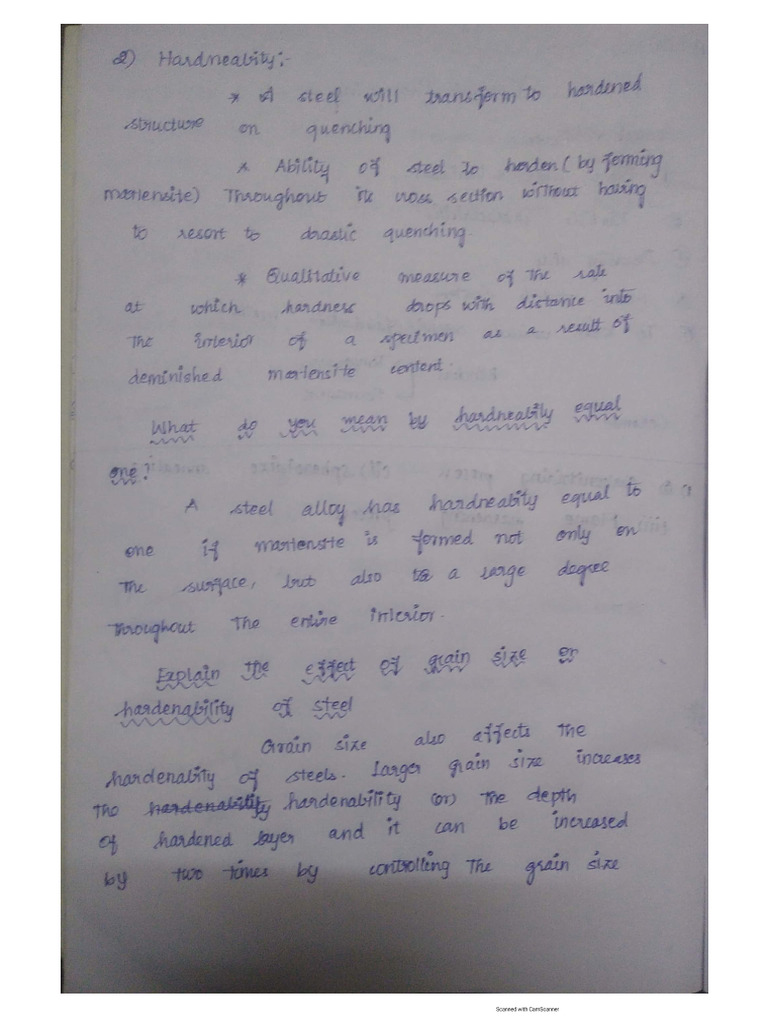 2) Hardneability:-
* A steel will transform to hardened
structure on quenching
* Ability of steel to horden ( by forming
martensite) Throughout its cross section without having
to resort to drastic quenching.
* Qualitative measure of the rate
at which hardness drops with distance into
The interior of a specimen as a result of
deminished martensite content.
What do you mean by hardneabily equal
one?
A steel alloy has hardneability equal to
one if martensite is formed not only on
The surface, but also to a large degree
Throughout The entire interior.
Explain The effect of grain size on
hardenability of steel
Grain size also affects The
hardenality of steels. Larger grain size increases
The hardenability hardenability (or) The depth
of hardened layer and it can be increased
by two times by controlling The grain size
Scanned with CamScanner